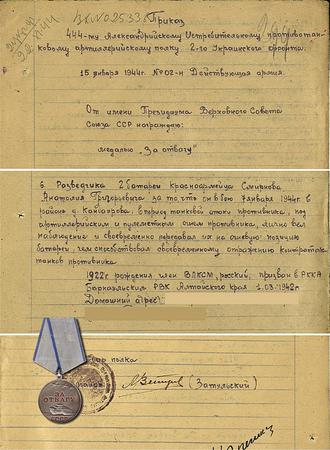 Приказ
444-му Александрийскому Истребительному противотан-
ковому артиллерийскому полку 2-го Украинского фронта.
15 января 1944г. № 02-н Действующая армия.
От имени Президиума Верховного Совета
Союза ССР награждаю:
медалью „За отвагу"
6. Разведчика 2 батареи красноармейца Смирнова
Анатолия Григорьевича за то что он в бою 9 января 1944г. в
районе д. Канбаровка. В период танковой атаки противника, под
артиллерийским и пулеметным огнем противника, лично вел
наблюдения и своевременно передавал их на огневую позицию
батареи, чем способствовал своевременному отражению контратак
танков противника
1922г. рождения член ВЛКСМ, русский, призван в РККА
Барнаульским РВК Алтайского края 1.03.1942г
Домашний адрес:
полка
(Затульский)
ЗА
ОТВАГУ
СССР